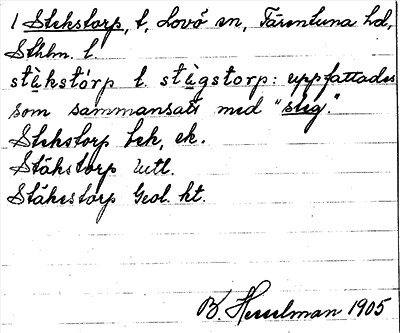 1 Stekstorp, t, Lovö sn, Färentuna hd,
Sthlm. l.
stäkstórp l. stägstorp: uppfattades
som sammansatt med "steg."
Stekstorp Jek, ek.
Stäkstorp Uttl.
Stäkestorp Geol. kt.
B. Hesselman 1905